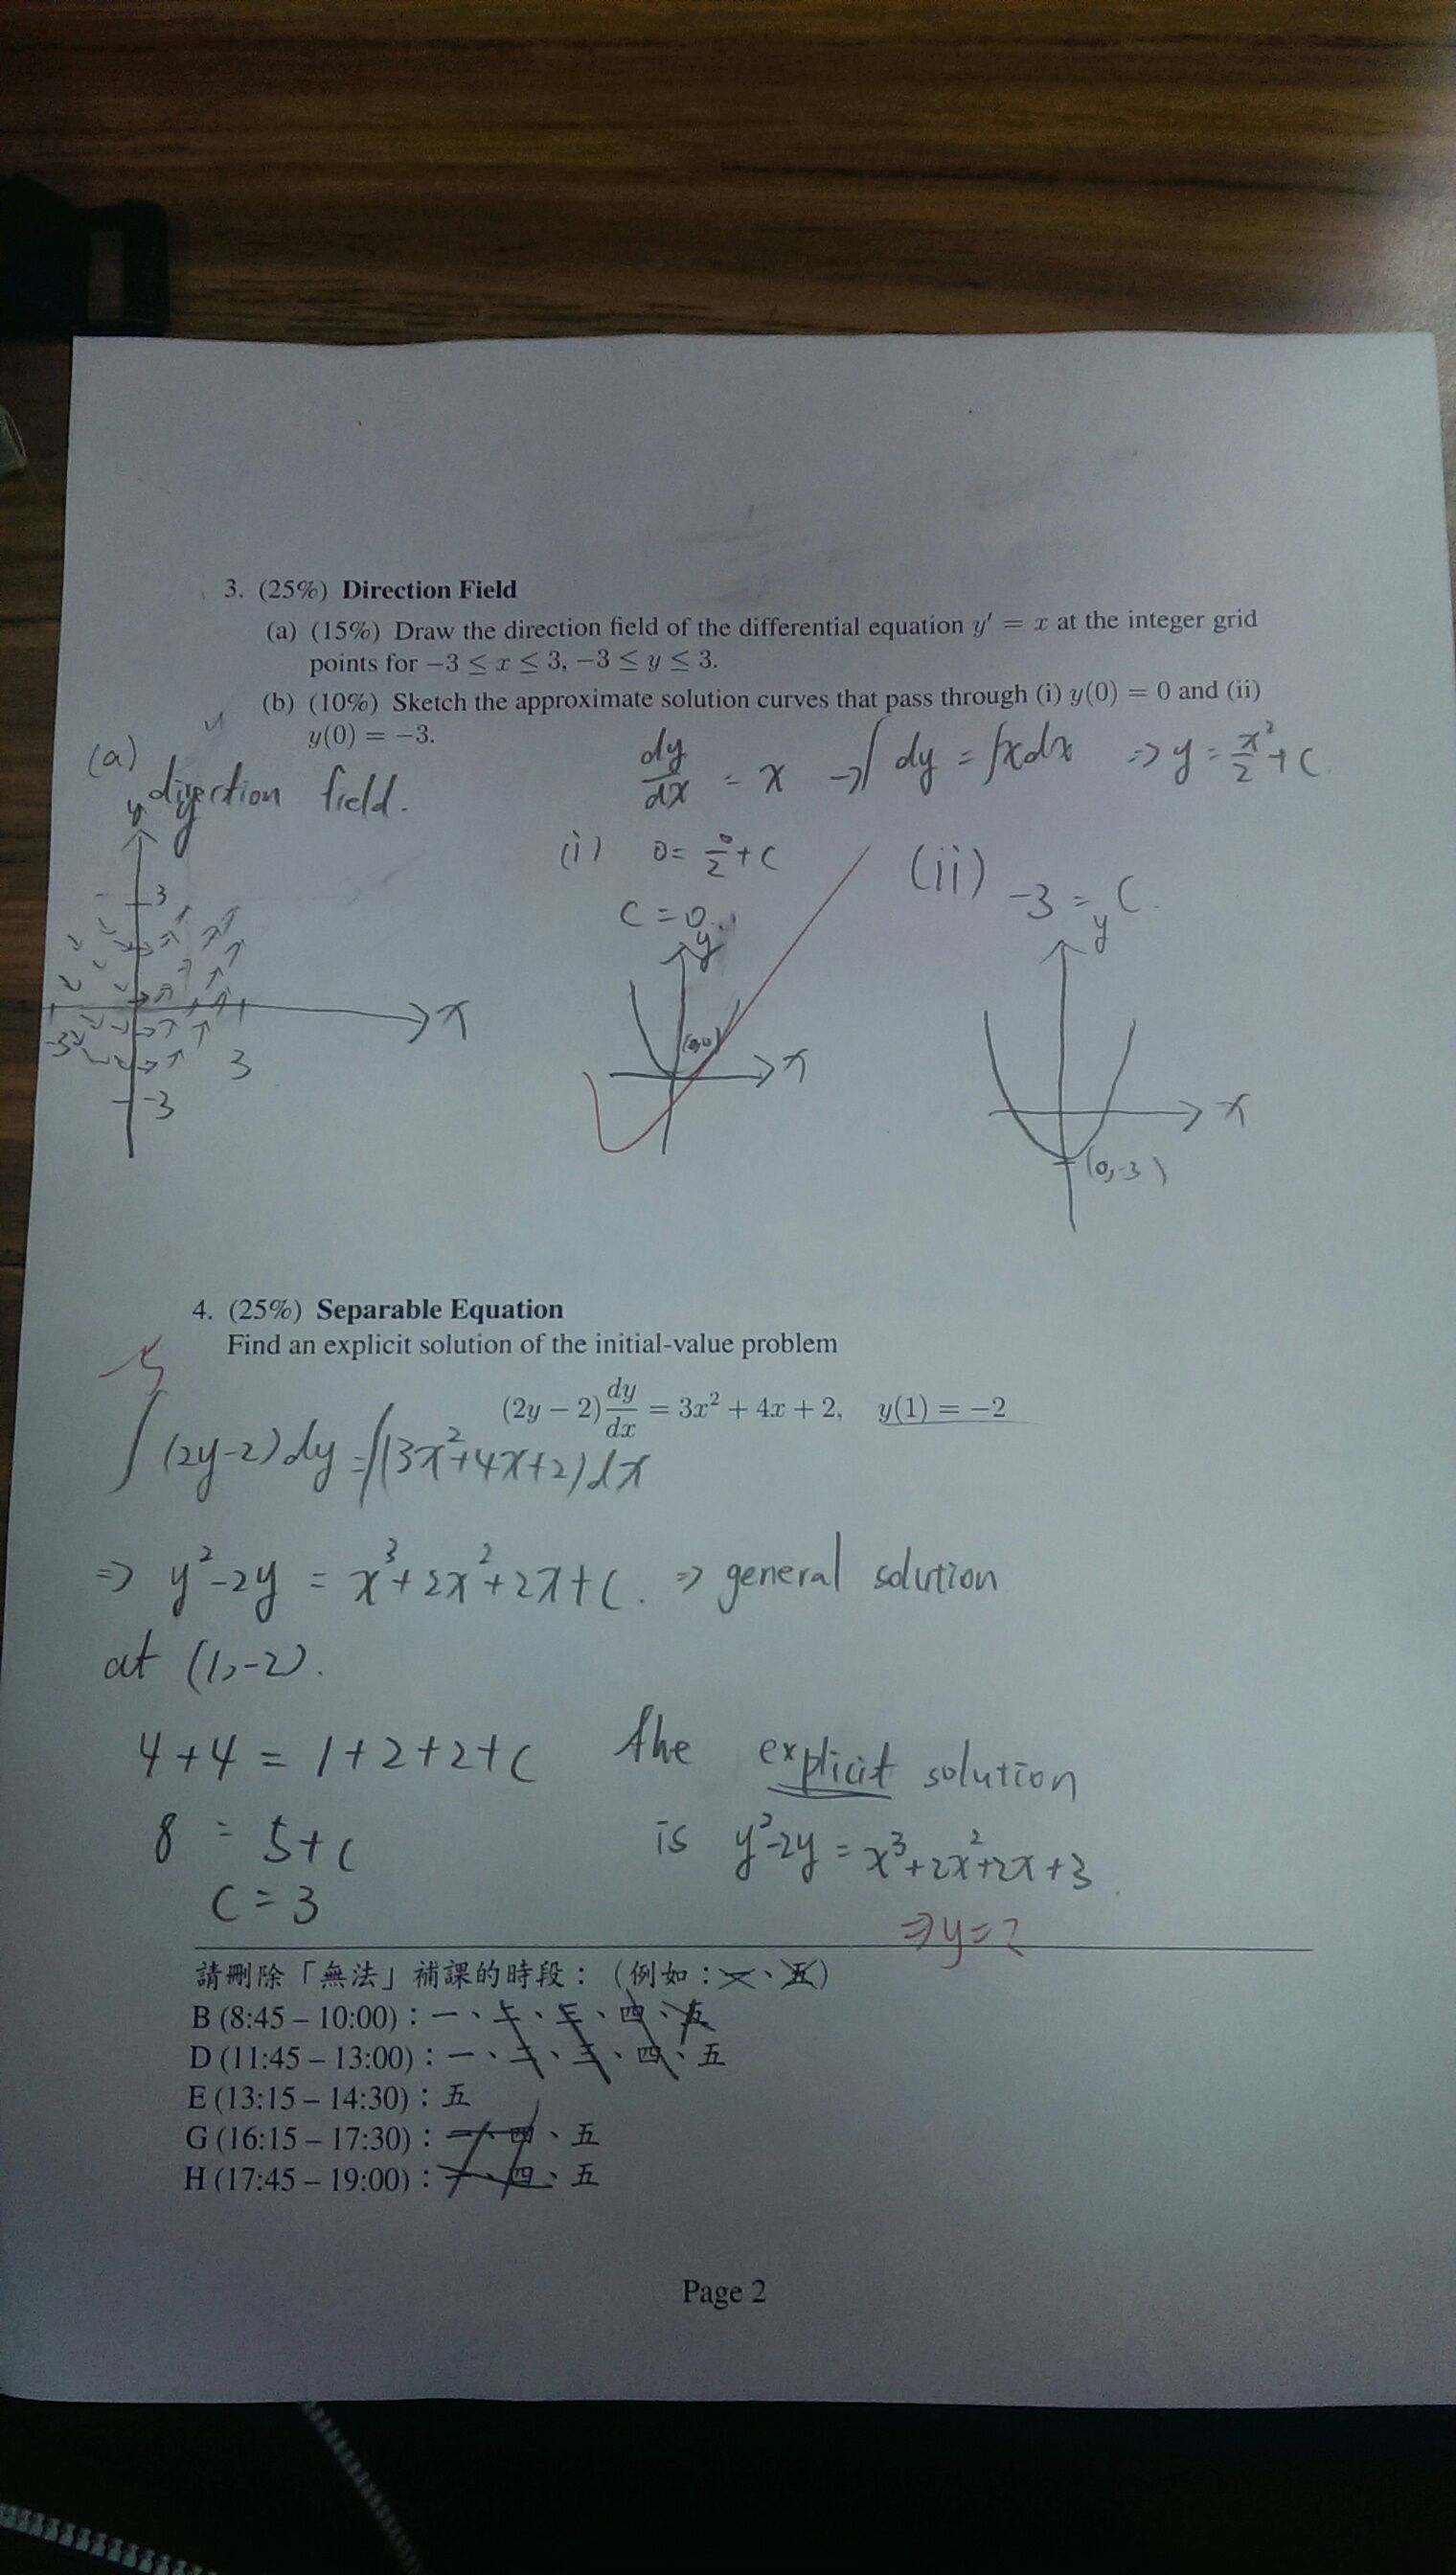 3. (25%) Direction Field
(a) (15%) Draw the direction field of the differential equation y′ = x at the integer grid
points for −3 ≤ x ≤ 3, −3 ≤ y ≤ 3.
(b) (10%) Sketch the approximate solution curves that pass through (i) y(0) = 0 and (ii)
y(0) = −3.
(a) direction field.
dy/dx = x → ∫dy = ∫xdx ⇒ y = x²/2 + C.
(i) 0 = 0/2 + C
C = 0
(ii) -3 = C.
y
3
x
-3
3
-3
y
(0,0)
x
y
x
(0,-3)
4. (25%) Separable Equation
Find an explicit solution of the initial-value problem
(2y − 2) dy/dx = 3x² + 4x + 2, y(1) = −2
∫(2y-2)dy = ∫(3x²+4x+2)dx
⇒ y²-2y = x³+2x²+2x+C. ⇒ general solution
at (1,-2).
4+4 = 1+2+2+C
8 = 5+C
C = 3
the explicit solution
is y²-2y = x³+2x²+2x+3
⇒ y = ?
請刪除「無法」補課的時段：（例如：一、五）
B (8:45 – 10:00)：一、二、三、四、五
D (11:45 – 13:00)：一、二、三、四、五
E (13:15 – 14:30)：五
G (16:15 – 17:30)：一、四、五
H (17:45 – 19:00)：一、四、五
Page 2